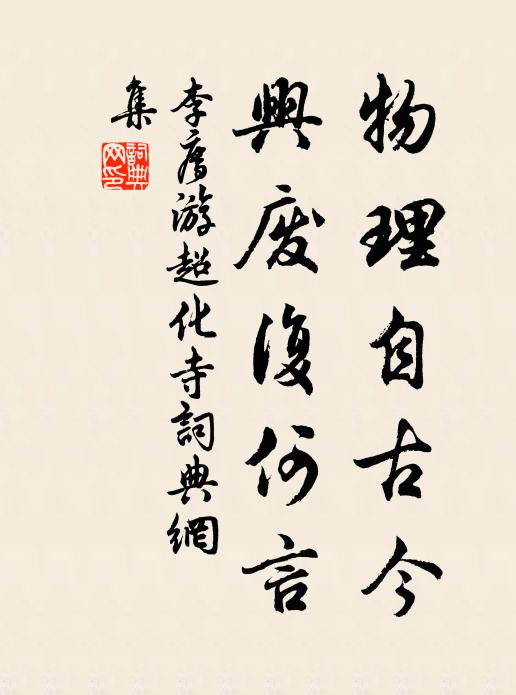 物理自古今
興廢復何言
李廌游超化寺詞典網
集
詞典网印